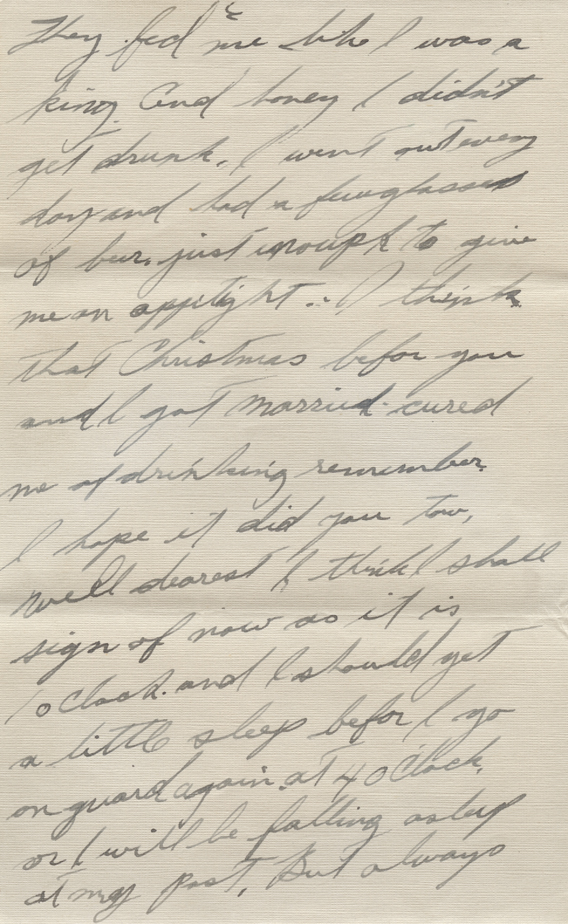 They fed me like I was a
king. And honey I didn't
get drunk. I went out every
day and had a few glasses
of beer. just enough to give
me an appitight... I think
that Christmas befor you
and I got married. cured
me of drinking remember.
I hope it did you tow,
Well dearest I think I shall
sign of now as it is
1 oclock. and I should get
a little sleep befor I go
on guard again. at 4 oClock.
or I will be falling asleep
at my post, But always